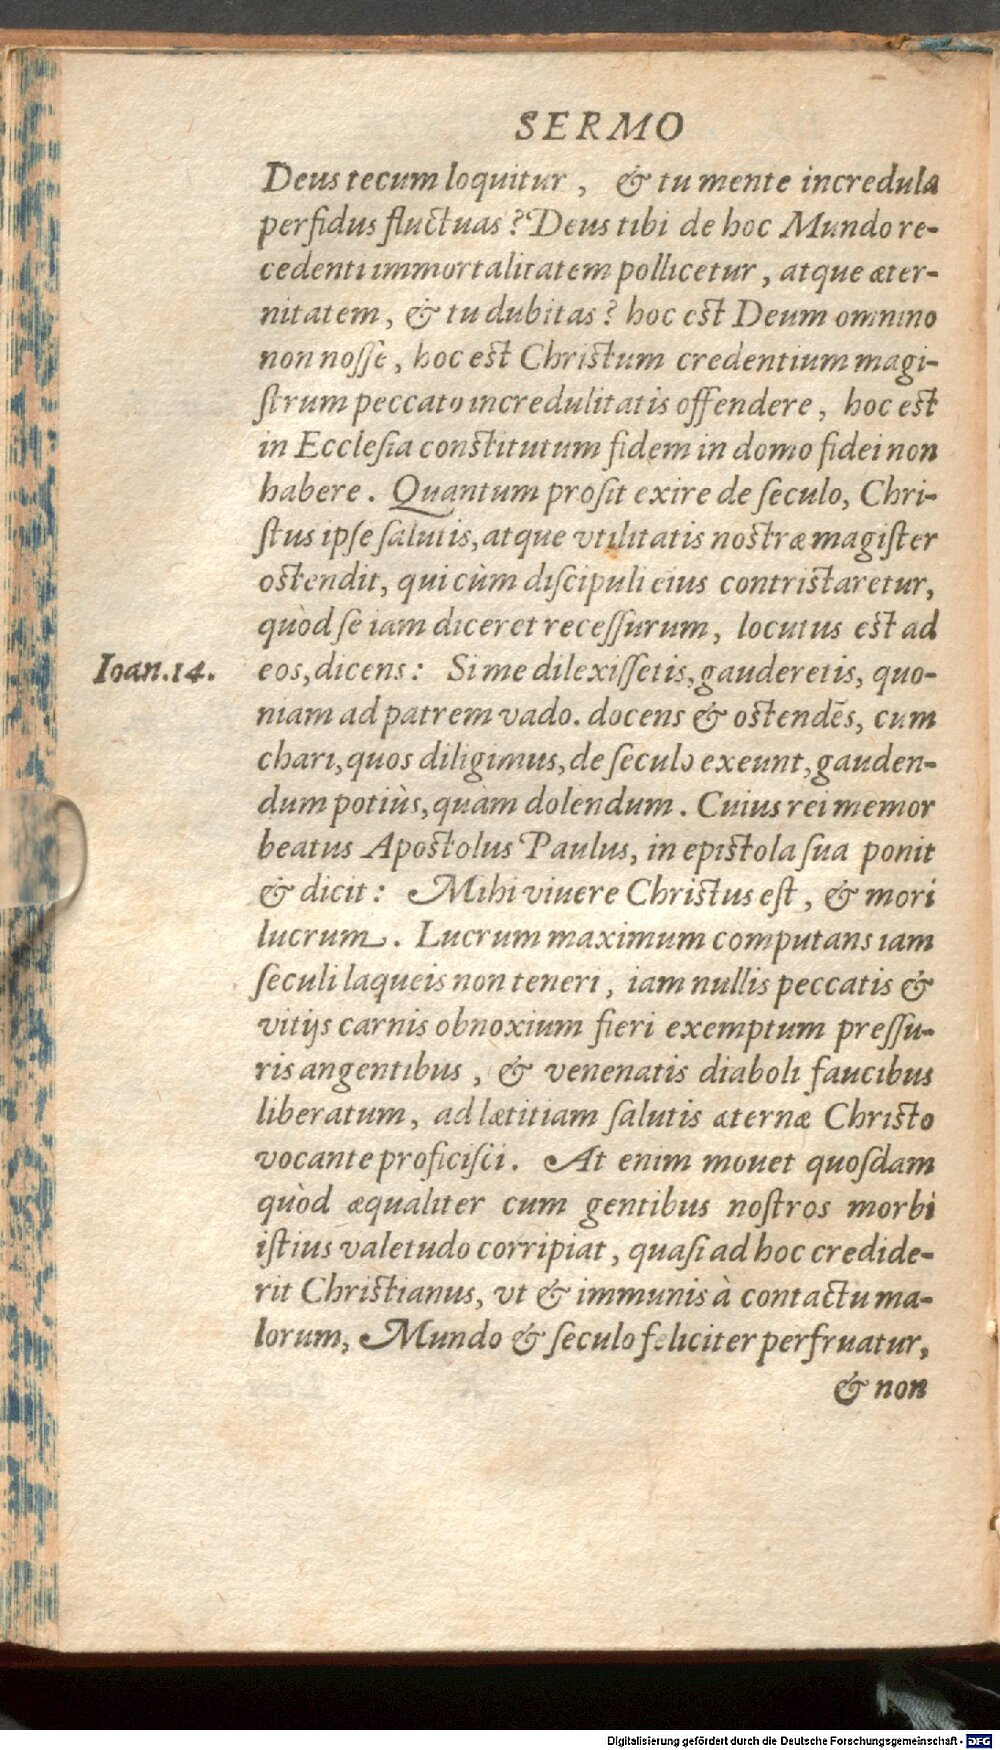 SERMO
Deus tecum loquitur, & tu mente incredula
perfidus fluctuas? Deus tibi de hoc Mundo re-
cedenti immortalitatem pollicetur, atque æter-
nitatem, & tu dubitas? hoc est Deum omnino
non nosse, hoc est Christum credentium magi-
strum peccato incredulitatis offendere, hoc est
in Ecclesia constitutum fidem in domo fidei non
habere. Quantum prosit exire de seculo, Chri-
stus ipse salutis, atque vtilitatis nostræ magister
ostendit, qui cùm discipuli eius contristaretur,
quòd se iam diceret recessurum, locutus est ad
Ioan.14. eos, dicens: Si me dilexissetis, gauderetis, quo-
niam ad patrem vado. docens & ostendēs, cum
chari, quos diligimus, de seculo exeunt, gauden-
dum potiùs, quàm dolendum. Cuius rei memor
beatus Apostolus Paulus, in epistola sua ponit
& dicit: Mihi viuere Christus est, & mori
lucrum. Lucrum maximum computans iam
seculi laqueis non teneri, iam nullis peccatis &
vitijs carnis obnoxium fieri exemptum pressu-
ris angentibus, & venenatis diaboli faucibus
liberatum, ad lætitiam salutis æternæ Christo
vocante proficisci. At enim mouet quosdam
quòd æqualiter cum gentibus nostros morbi
istius valetudo corripiat, quasi ad hoc credide-
rit Christianus, vt & immunis à contactu ma-
lorum, Mundo & seculo feliciter perfruatur,
& non
Digitalisierung gefördert durch die Deutsche Forschungsgemeinschaft - DFG